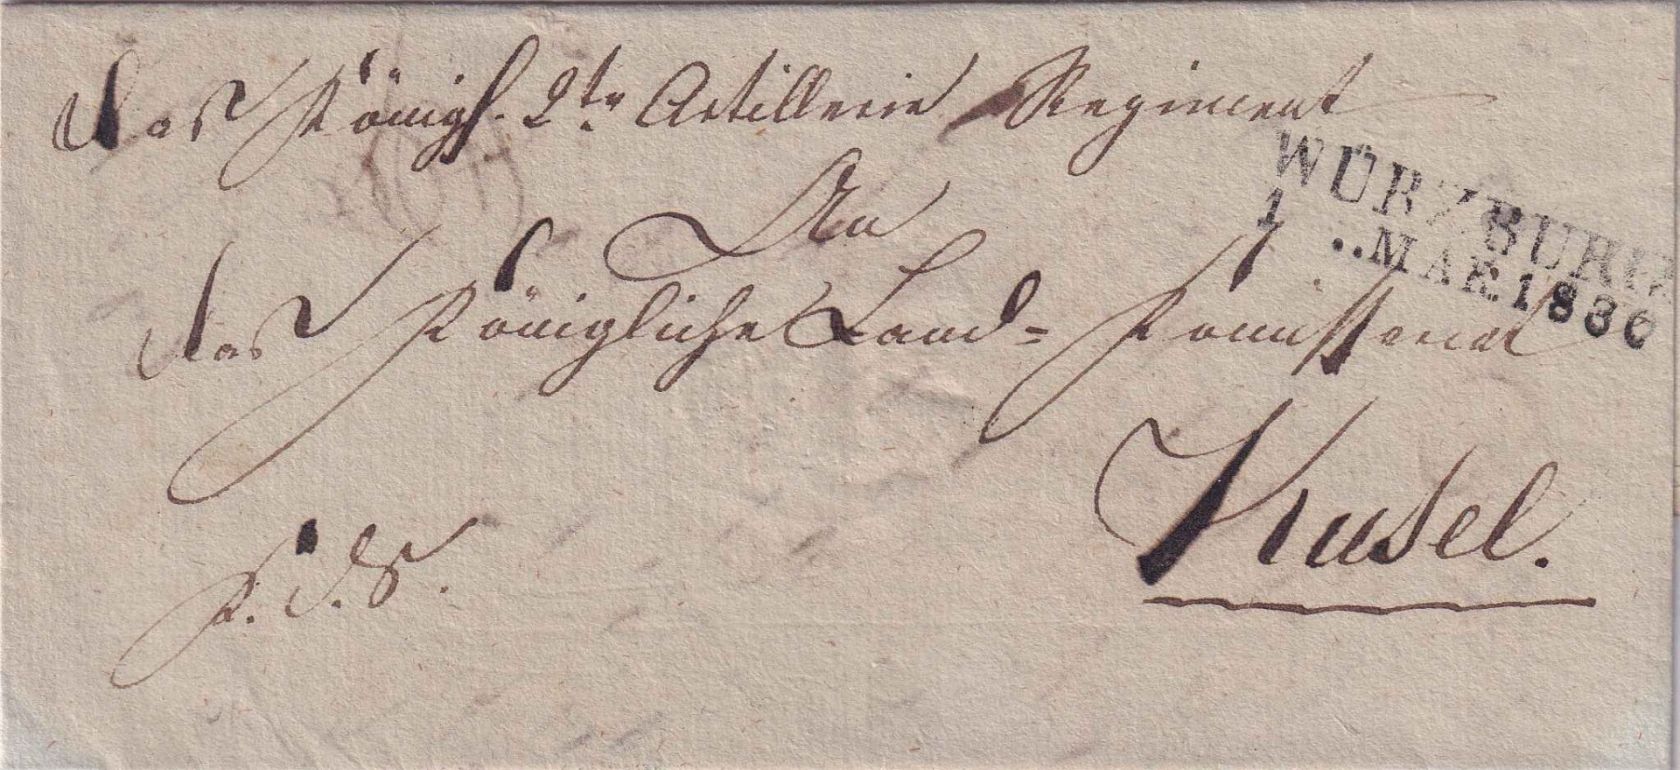 Das Königl. 2te Artillerie Regiment
An
das Königliche Land=Komissariat
Kusel.
K. D. S.
WÜRZBURG
1 ..MAR.1836